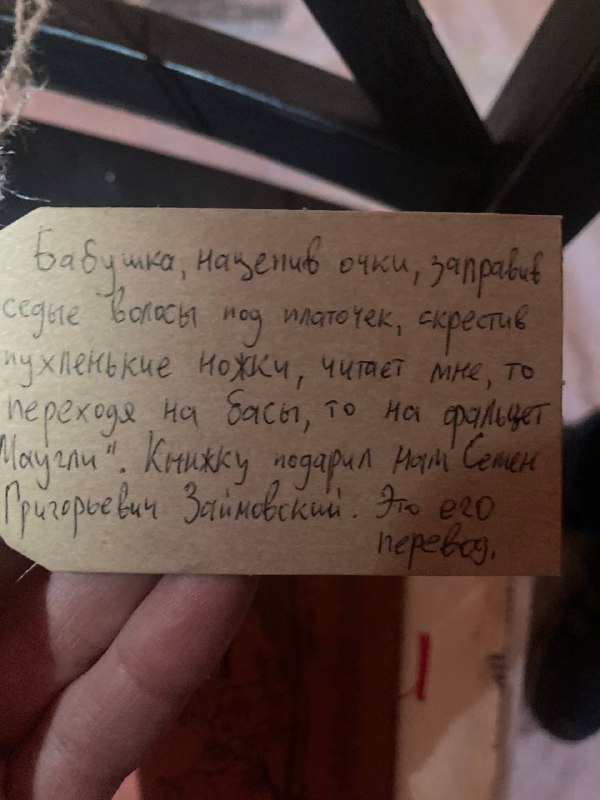 Бабушка, нацепив очки, заправив
седые волосы под платочек, скрестив
пухленькие ножки, читает мне, то
переходя на басы, то на фальцет
Маугли". Книжку подарил нам Семен
Григорьевич Займовский. Это его
перевод.